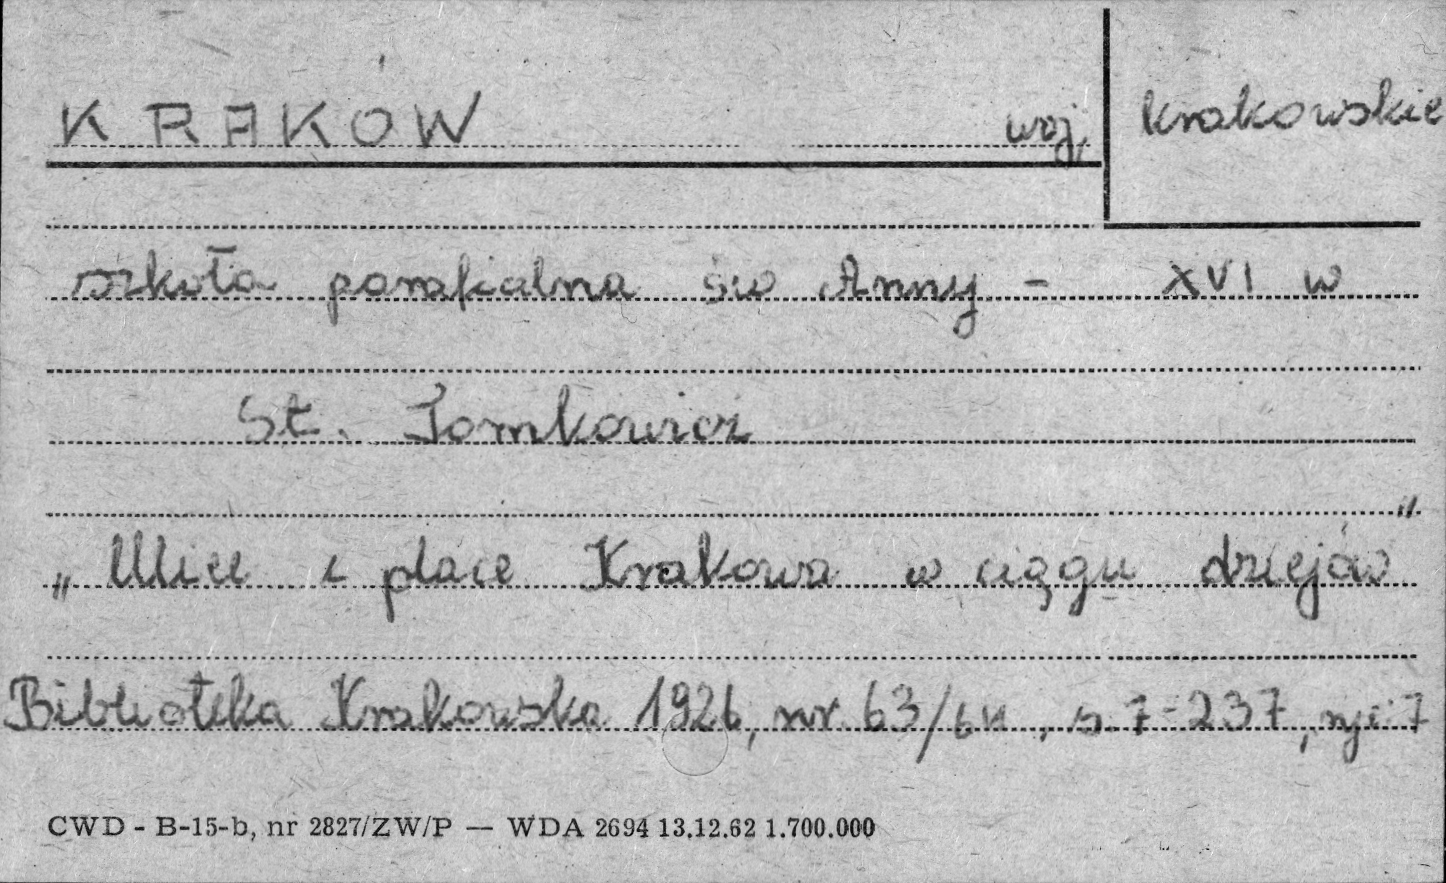 KRAKÓW woj. krakowskie
szkoła parafialna św Anny - XVI w
St. Tomkowicz
„Ulice i place Krakowa w ciągu dziejów"
Biblioteka Krakowska 1926, nr 63/64, s. 7-237, ryc 7
CWD - B-15-b, nr 2827/ZW/P — WDA 2694 13.12.62 1.700.000